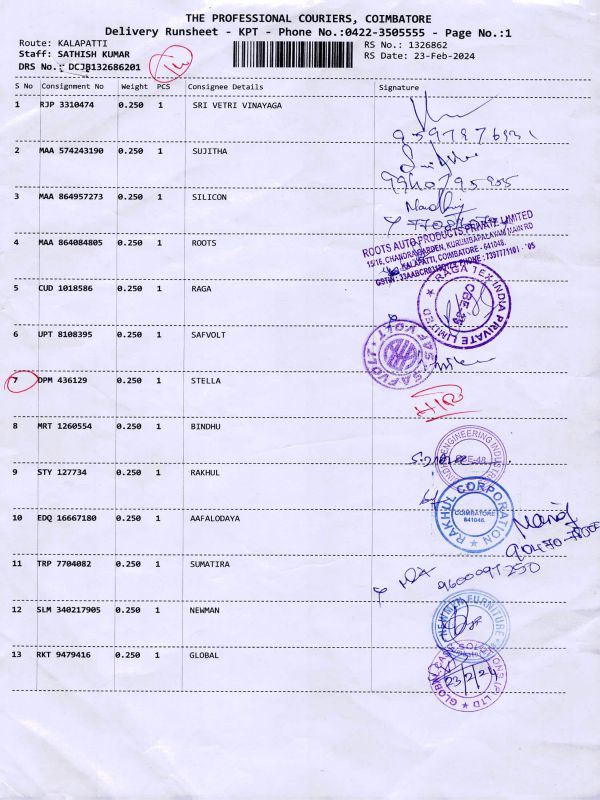 THE PROFESSIONAL COURIERS, COIMBATORE
Delivery Runsheet - KPT - Phone No.:0422-3505555 - Page No.:1
Route: KALAPATTI
RS No.: 1326862
Staff: SATHISH KUMAR
RS Date: 23-Feb-2024
DRS No.: DCJB132686201
S No Consignment No Weight PCS Consignee Details Signature
1 RJP 3310474 0.250 1 SRI VETRI VINAYAGA
2 MAA 574243190 0.250 1 SUJITHA
3 MAA 864957273 0.250 1 SILICON
4 MAA 864084805 0.250 1 ROOTS
ROOTS AUTO PRODUCTS PRIVATE LIMITED
KALAPATTI, COIMBATORE - 641048.
5 CUD 1018586 0.250 1 RAGA
RAGA TEX INDIA PRIVATE LIMITED
6 UPT 8108395 0.250 1 SAFVOLT
SAFVOLT
7 DPM 436129 0.250 1 STELLA
8 MRT 1260554 0.250 1 BINDHU
ENGINEERING
9 STY 127734 0.250 1 RAKHUL
RAKHUL CORPORATION
COIMBATORE
641048.
10 EDQ 16667180 0.250 1 AAFALODAYA
11 TRP 7704082 0.250 1 SUMATIRA
12 SLM 340217905 0.250 1 NEWMAN
FURNITURE
13 RKT 9479416 0.250 1 GLOBAL
23/2/24